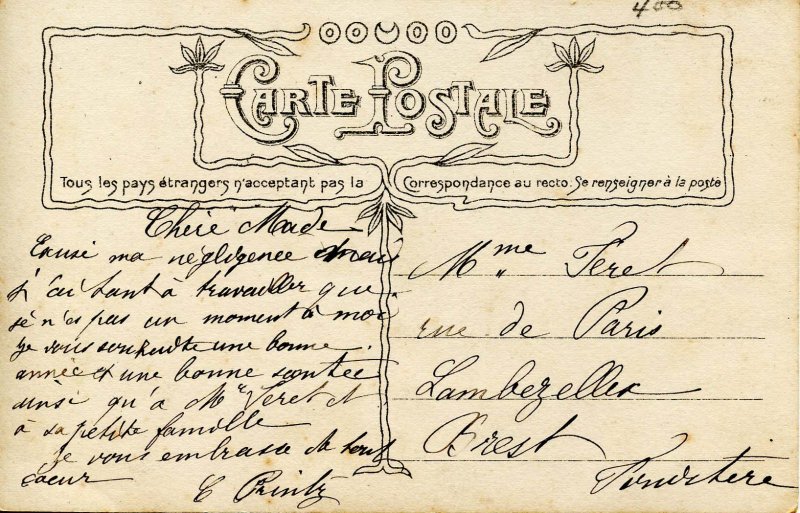 400
CARTE POSTALE
Tous les pays étrangers n'acceptant pas la Correspondance au recto. Se renseigner à la poste
Chère Made
Exusé ma négligence mais
j'ai tant à travailler que
sé n'es pas un moment à moi
je vous souhaite une bonne
année et une bonne santée
ainsi qu'à Mr Feret et
à sa petite famille
je vous embrasse de tout
coeur C Printz
Mme Feret
rue de Paris
Lambezellec
Brest
Finistère